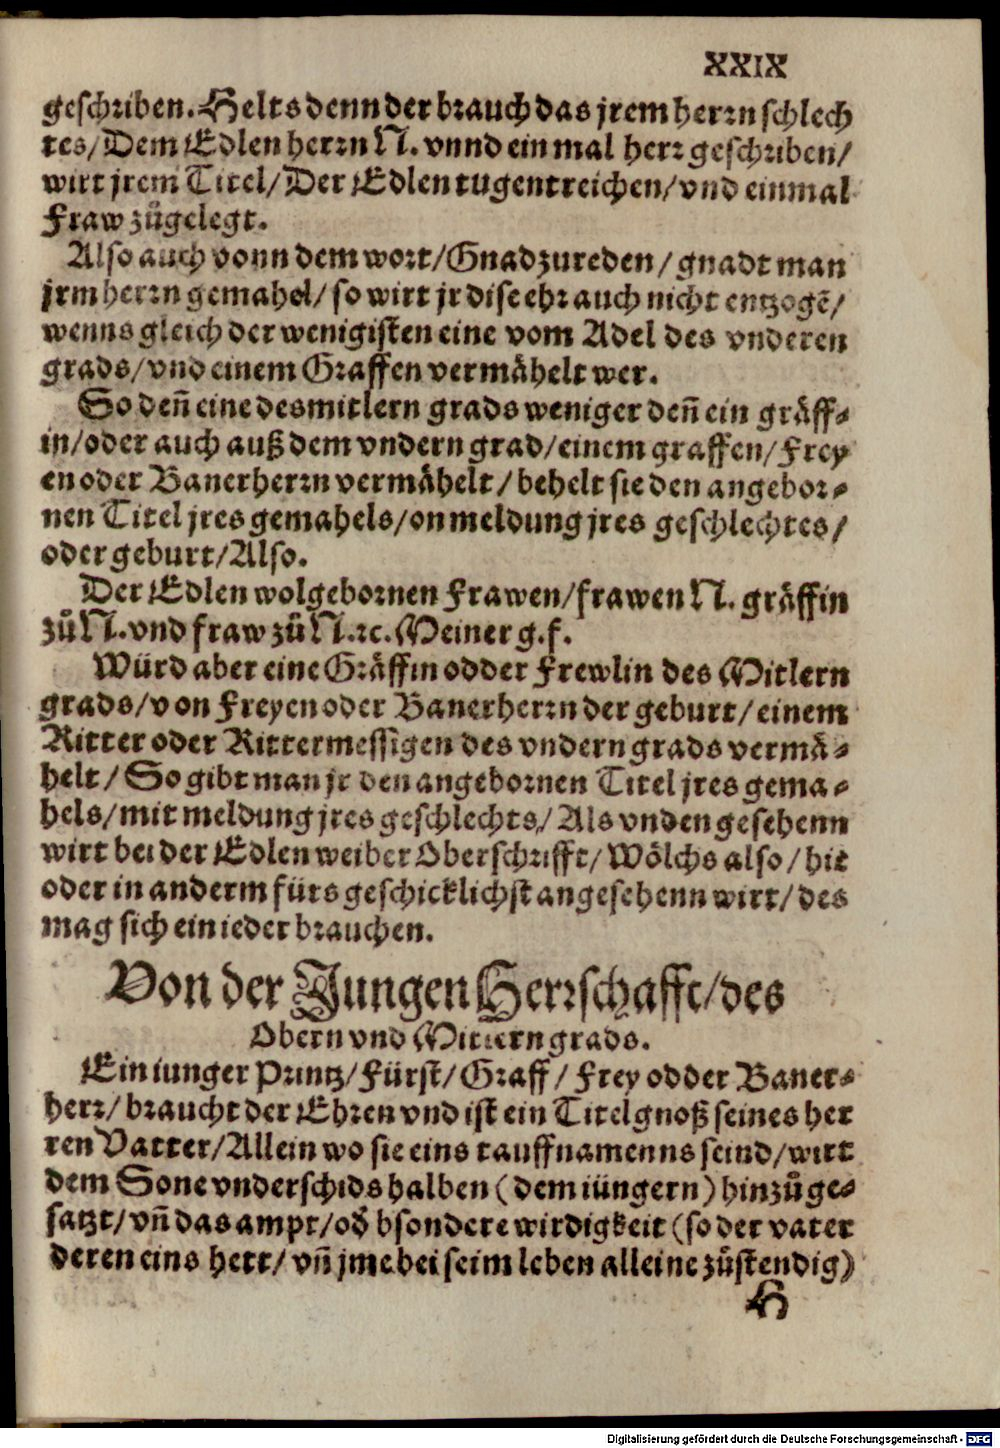 XXIX
geschriben. Helts denn der brauch das jrem herrn schlech
tes/ Dem Edlen herrn N. vnnd ein mal herr geschriben/
wirt jrem Titel/ Der Edlen tugentreichen/ vnd einmal
Fraw zůgelegt.
Also auch vonn dem wort/ Gnad zu reden/ gnadt man
jrm herrn gemahel/ so wirt jr dise ehr auch nicht entzogẽ/
wenns gleich der wenigisten eine vom Adel des vnderen
grads/ vnd einem Graffen vermåhelt wer.
So deñ eine des mitlern grads weniger deñ ein gråff⸗
in/ oder auch auß dem vndern grad/ einem graffen/ Frey
en oder Banerherrn vermåhelt/ behelt sie den angebor⸗
nen Titel jres gemahels/ on meldung jres geschlechtes/
oder geburt/ Also.
Der Edlen wolgebornen Frawen/ frawen N. gråffin
zů N. vnd fraw zů N. ꝛc. Meiner g. f.
Würd aber eine Gråffin odder Frewlin des Mitlern
grads/ von Freyen oder Banerherrn der geburt/ einem
Ritter oder Rittermessigen des vndern grads vermå⸗
helt/ So gibt man jr den angebornen Titel jres gema⸗
hels/ mit meldung jres geschlechts/ Als vnden gesehenn
wirt bei der Edlen weiber Oberschrifft/ Wölchs also/ hie
oder in anderm fürs geschicklichst angesehenn wirt/ des
mag sich ein ieder brauchen.
Von der Jungen Herrschafft/ des
Obern vnd Mittern grads.
Ein iunger Printz/ Fürst/ Graff/ Frey odder Baner⸗
herr/ braucht der Ehren vnd ist ein Titelgnoß seines her
ren Vatter/ Allein wo sie eins tauffnamenns seind/ wirt
dem Sone vnderschids halben (dem iüngern) hinzůge⸗
satzt/ vñ das ampt/ oď bsondere wirdigkeit (so der vater
deren eins hett/ vñ jme bei seim leben alleine zůstendig)
H
Digitalisierung gefördert durch die Deutsche Forschungsgemeinschaft - DFG